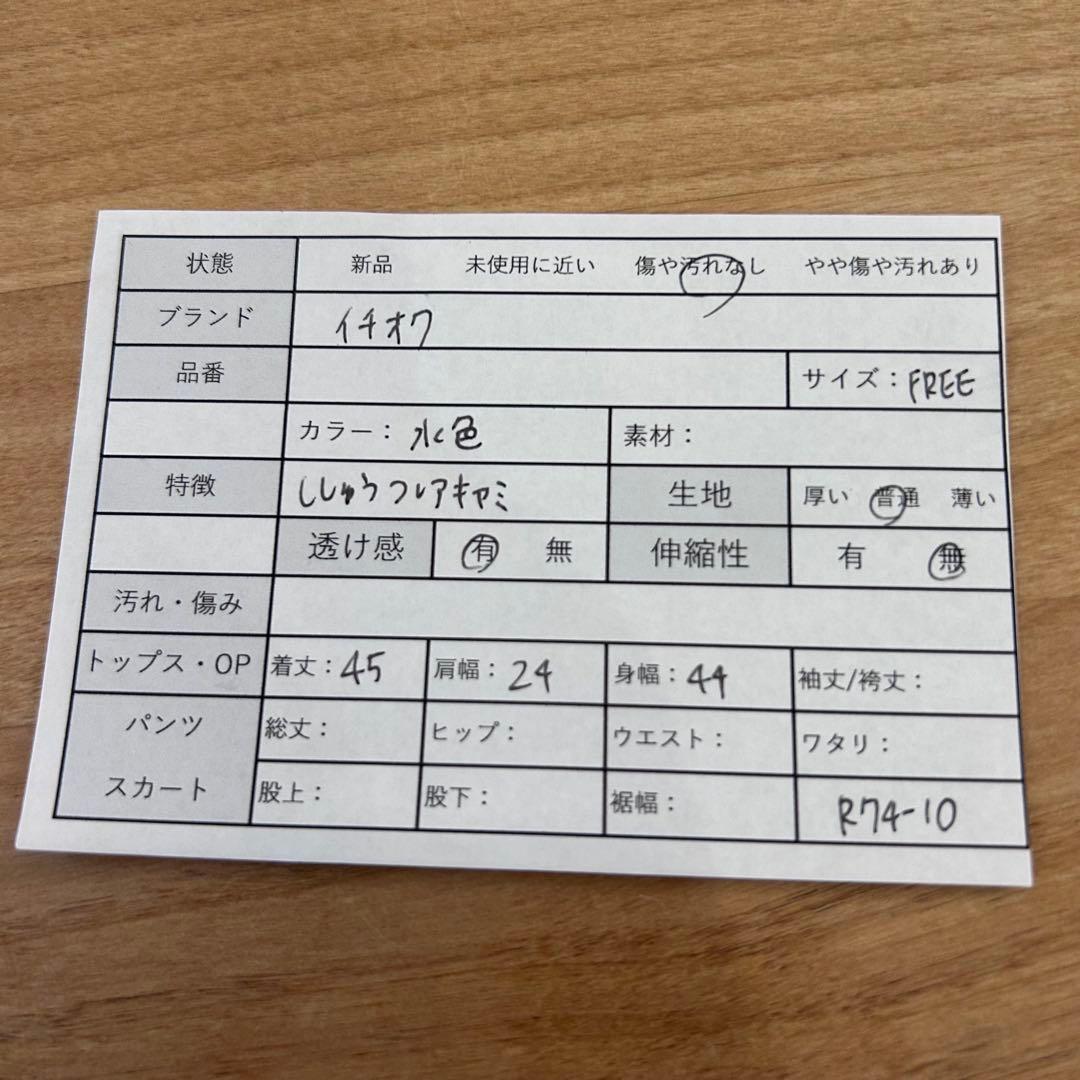 状態 新品 未使用に近い 傷や汚れなし やや傷や汚れあり
ブランド イチオク
品番 サイズ：FREE
カラー：水色 素材：
特徴 ししゅうフレアキャミ 生地 厚い 普通 薄い
透け感 有 無 伸縮性 有 無
汚れ・傷み
トップス・OP 着丈：45 肩幅：24 身幅：44 袖丈/袴丈：
パンツ 総丈： ヒップ： ウエスト： ワタリ：
スカート 股上： 股下： 裾幅： R74-10